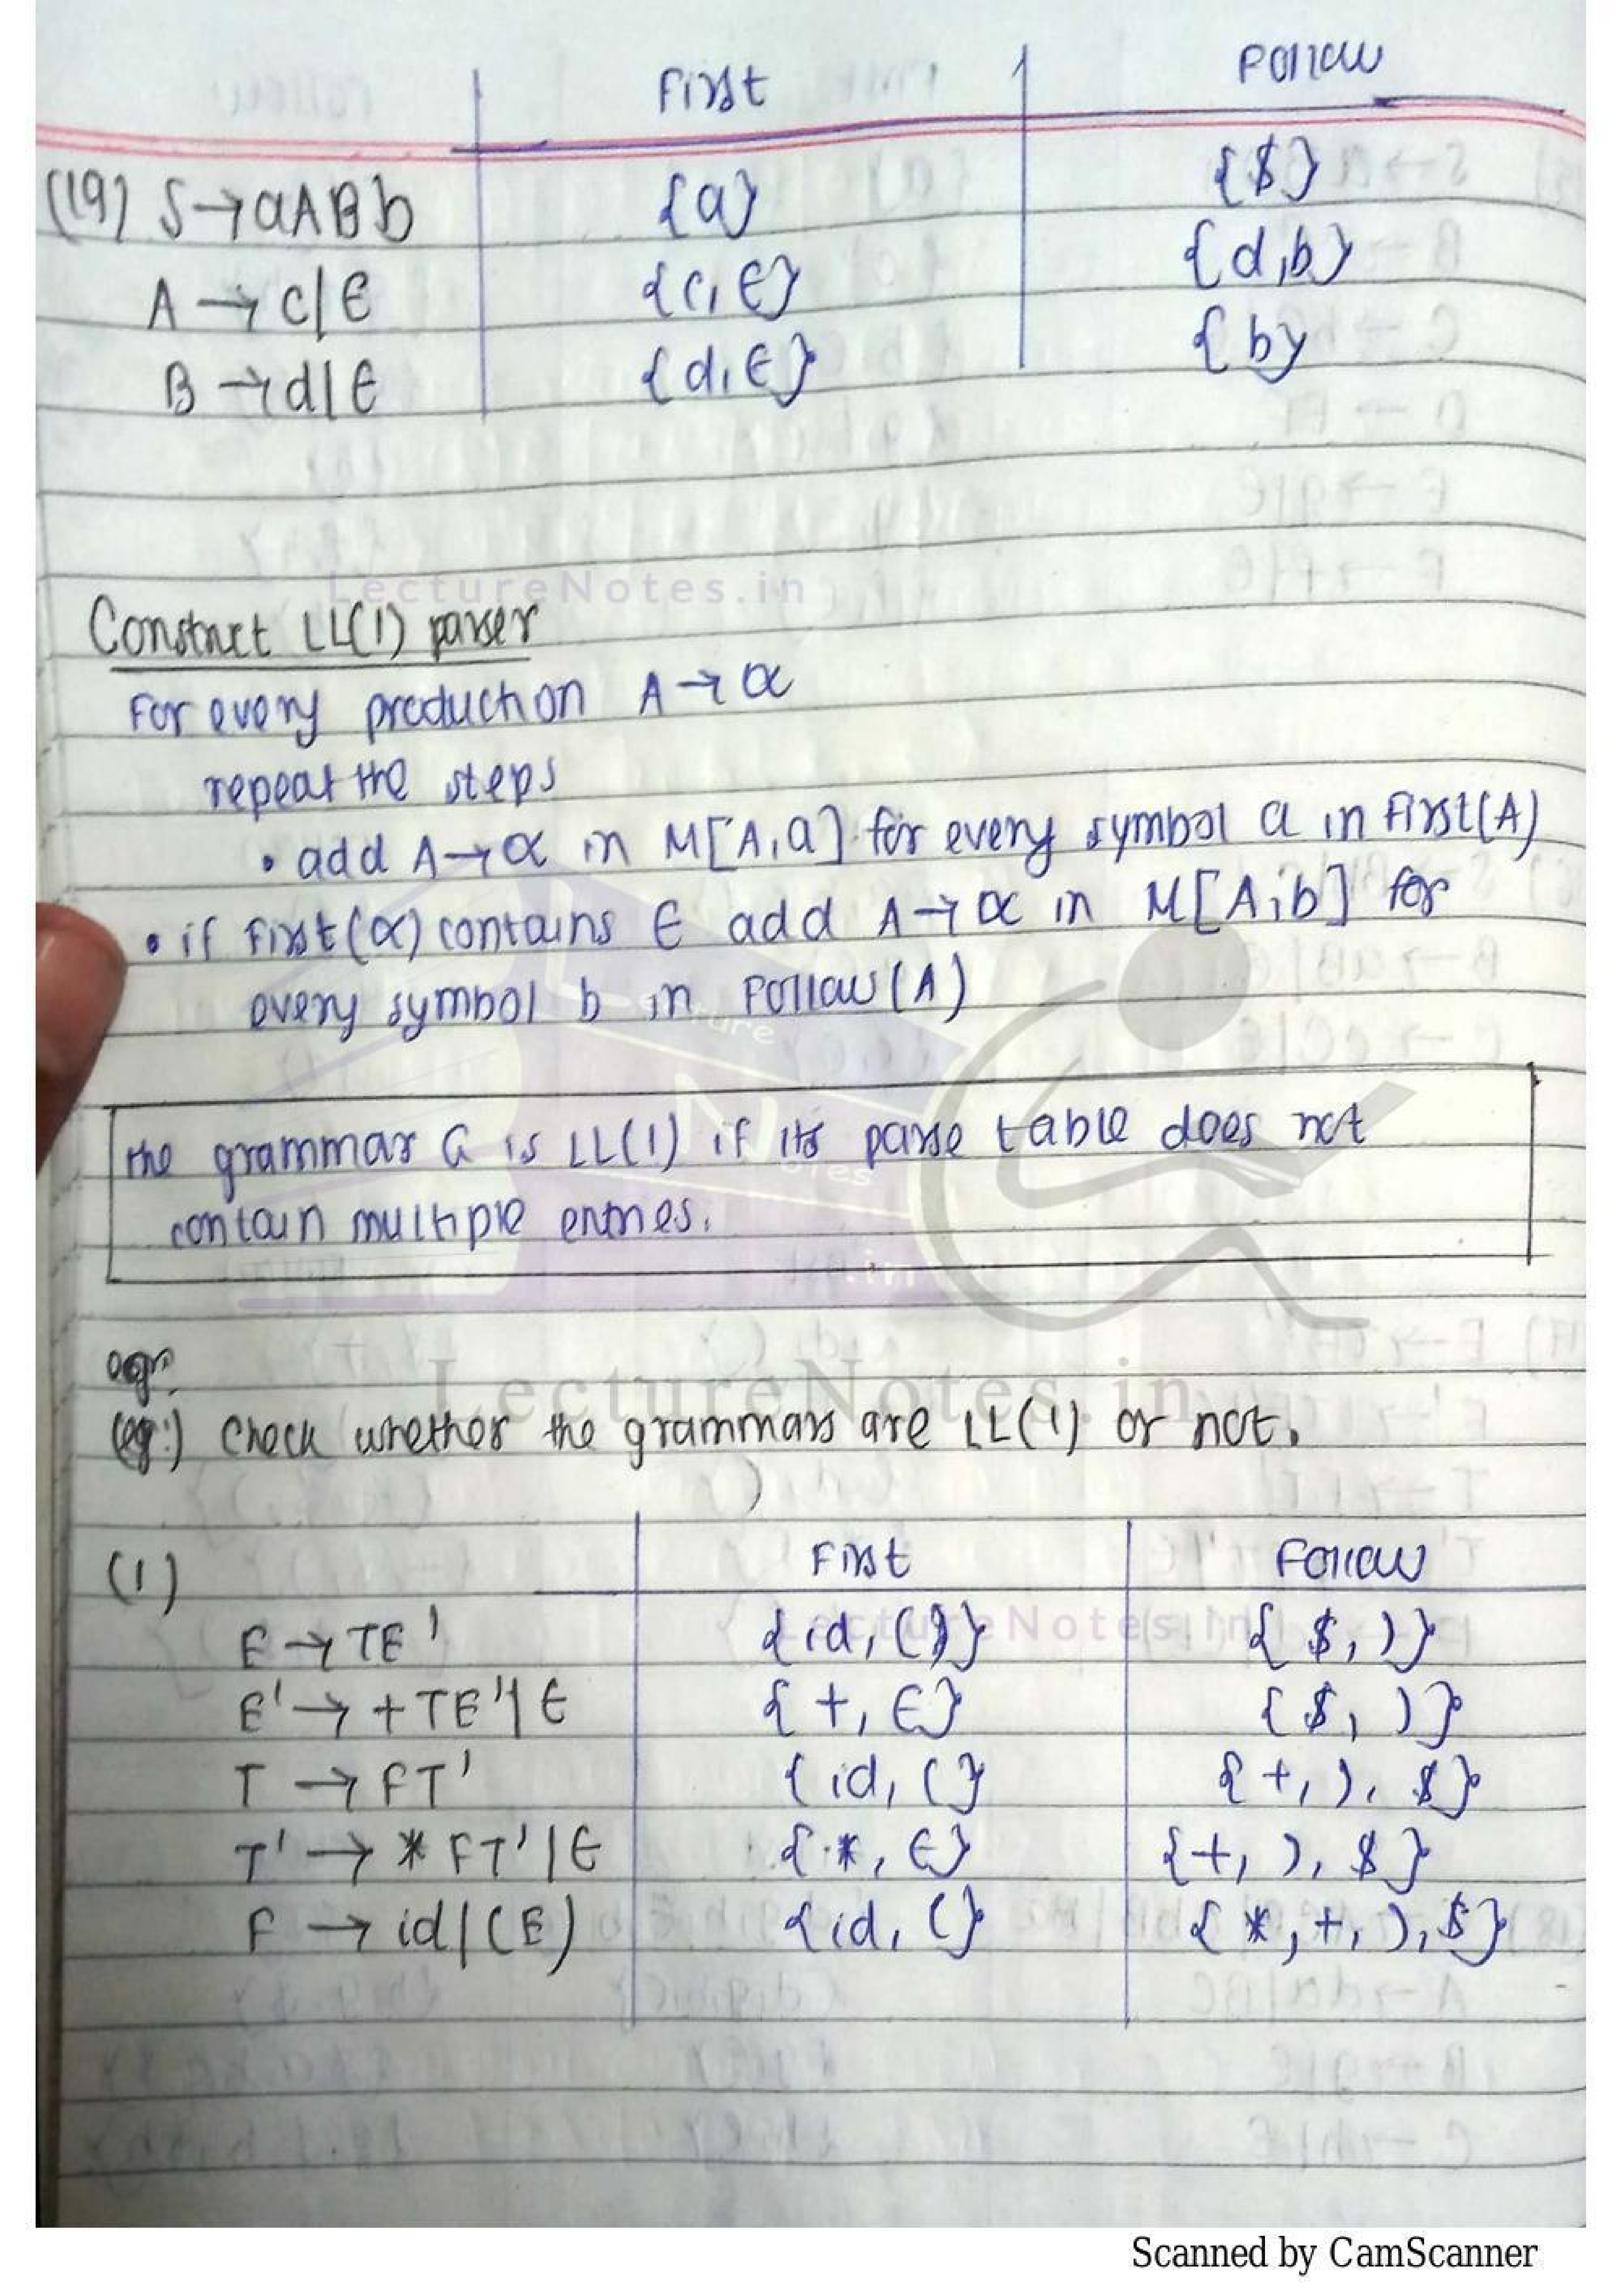 First Follow
(19) S→aABb {a} {$}
A→c|ϵ {c,ϵ} {d,b}
B→d|ϵ {d,ϵ} {b}
LectureNotes.in
Construct LL(1) parser
For every production A→α
repeat the steps
• add A→α in M[A,a] for every symbol a in First(A)
• if First(α) contains ϵ add A→α in M[A,b] for
every symbol b in Follow(A)
the grammar G is LL(1) if its parse table does not
contain multiple entries.
LectureNotes.in
(eg:) Check whether the grammars are LL(1) or not.
(1) First Follow
E→TE' {id, (} {$, )}
LectureNotes.in
E'→+TE'|ϵ {+, ϵ} {$, )}
T→FT' {id, (} {+, ), $}
T'→*FT'|ϵ {*, ϵ} {+, ), $}
F→id|(E) {id, (} {*, +, ), $}
Scanned by CamScanner